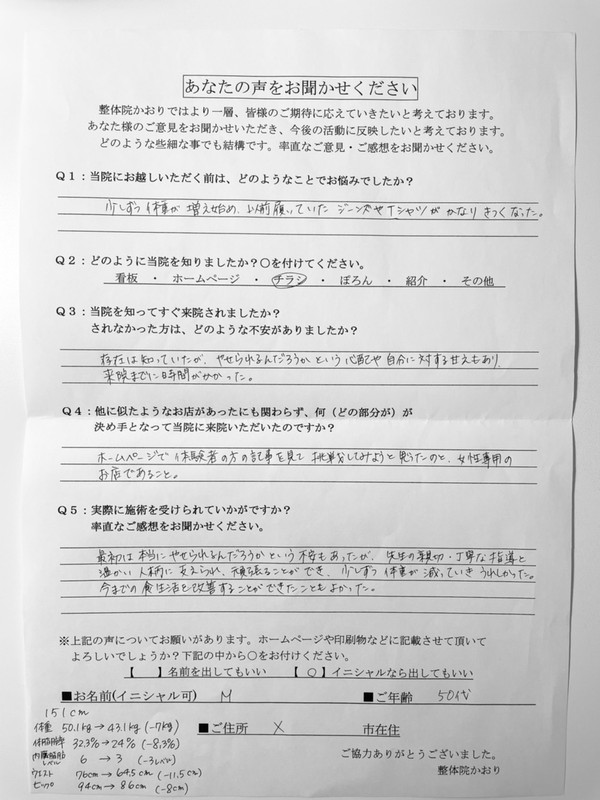 あなたの声をお聞かせください
整体院かおりではより一層、皆様のご期待に応えていきたいと考えております。
あなた様のご意見をお聞かせいただき、今後の活動に反映したいと考えております。
どのような些細な事でも結構です。率直なご意見・ご感想をお聞かせください。
Q1：当院にお越しいただく前は、どのようなことでお悩みでしたか？
少しずつ体重が増え始め、以前履いていたジーンズやTシャツがかなりきつくなった。
Q2：どのように当院を知りましたか？〇を付けてください。
看板 ・ ホームページ ・ チラシ ・ ぽろん ・ 紹介 ・ その他
Q3：当院を知ってすぐ来院されましたか？
されなかった方は、どのような不安がありましたか？
存在は知っていたが、やせられるんだろうかという心配や自分に対する甘えもあり、
来院までに時間がかかった。
Q4：他に似たようなお店があったにも関わらず、何（どの部分が）が
決め手となって当院に来院いただいたのですか？
ホームページで体験者の方の記事を見て挑戦してみようと思ったのと、女性専用の
お店であること。
Q5：実際に施術を受けられていかがですか？
率直なご感想をお聞かせください。
最初は本当にやせられるんだろうかという不安もあったが、先生の親切・丁寧な指導と
温かい人柄に支えられ、頑張ることができ、少しずつ体重が減っていきうれしかった。
今までの食生活を改善することができたこともよかった。
※上記の声についてお願いがあります。ホームページや印刷物などに記載させて頂いて
よろしいでしょうか？下記の中から〇をお付けください。
【 】名前を出してもいい 【 〇 】イニシャルなら出してもいい
■お名前(イニシャル可) M ■ご年齢 50代
■ご住所 X 市在住
151cm
体重 50.1kg→43.1kg(-7kg)
体脂肪率 32.3%→24%(-8.3%)
内臓脂肪レベル 6→3(-3レベル)
ウエスト 76cm→64.5cm(-11.5cm)
ヒップ 94cm→86cm(-8cm)
ご協力ありがとうございました。
整体院かおり